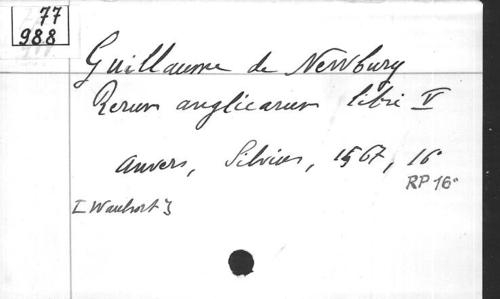 77
988
Guillaume de Newbury
Rerum anglicarum libri V
Anvers, Silvius, 1567, 16°
RP 16°
[Wauhort]